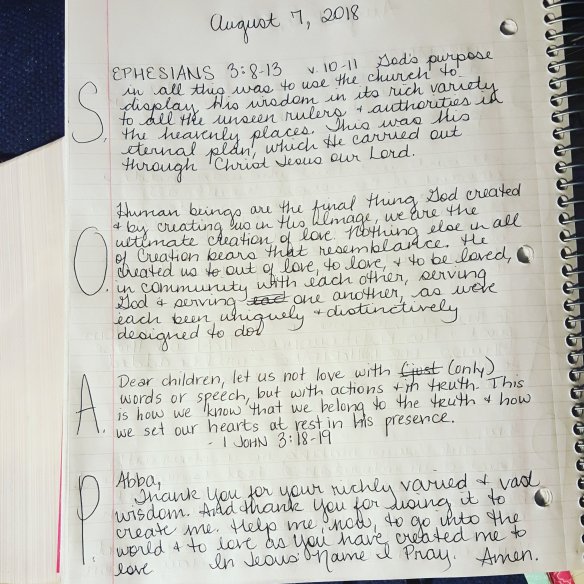 August 7, 2018
S. EPHESIANS 3:8-13 v. 10-11 God's purpose
in all this was to use the church to
display His wisdom in its rich variety
to all the unseen rulers + authorities in
the heavenly places. This was His
eternal plan, which He carried out
through Christ Jesus our Lord.
O. Human beings are the final thing God created
+ by creating us in His image, we are the
ultimate creation of love. Nothing else in all
of Creation bears that resemblance. He
created us to out of love, to love, + to be loved,
in community with each other, serving
God + serving ead one another, as were
each been uniquely + distinctively
designed to do!
A. Dear children, let us not love with (just (only)
words or speech, but with actions + in truth. This
is how we know that we belong to the truth + how
we set our hearts at rest in His presence.
- 1 JOHN 3:18-19
P. Abba,
Thank You for your richly varied + vast
wisdom. And thank You for using it to
create me. Help me now, to go into the
world + to love as You have created me to
love In Jesus' Name I Pray. Amen.